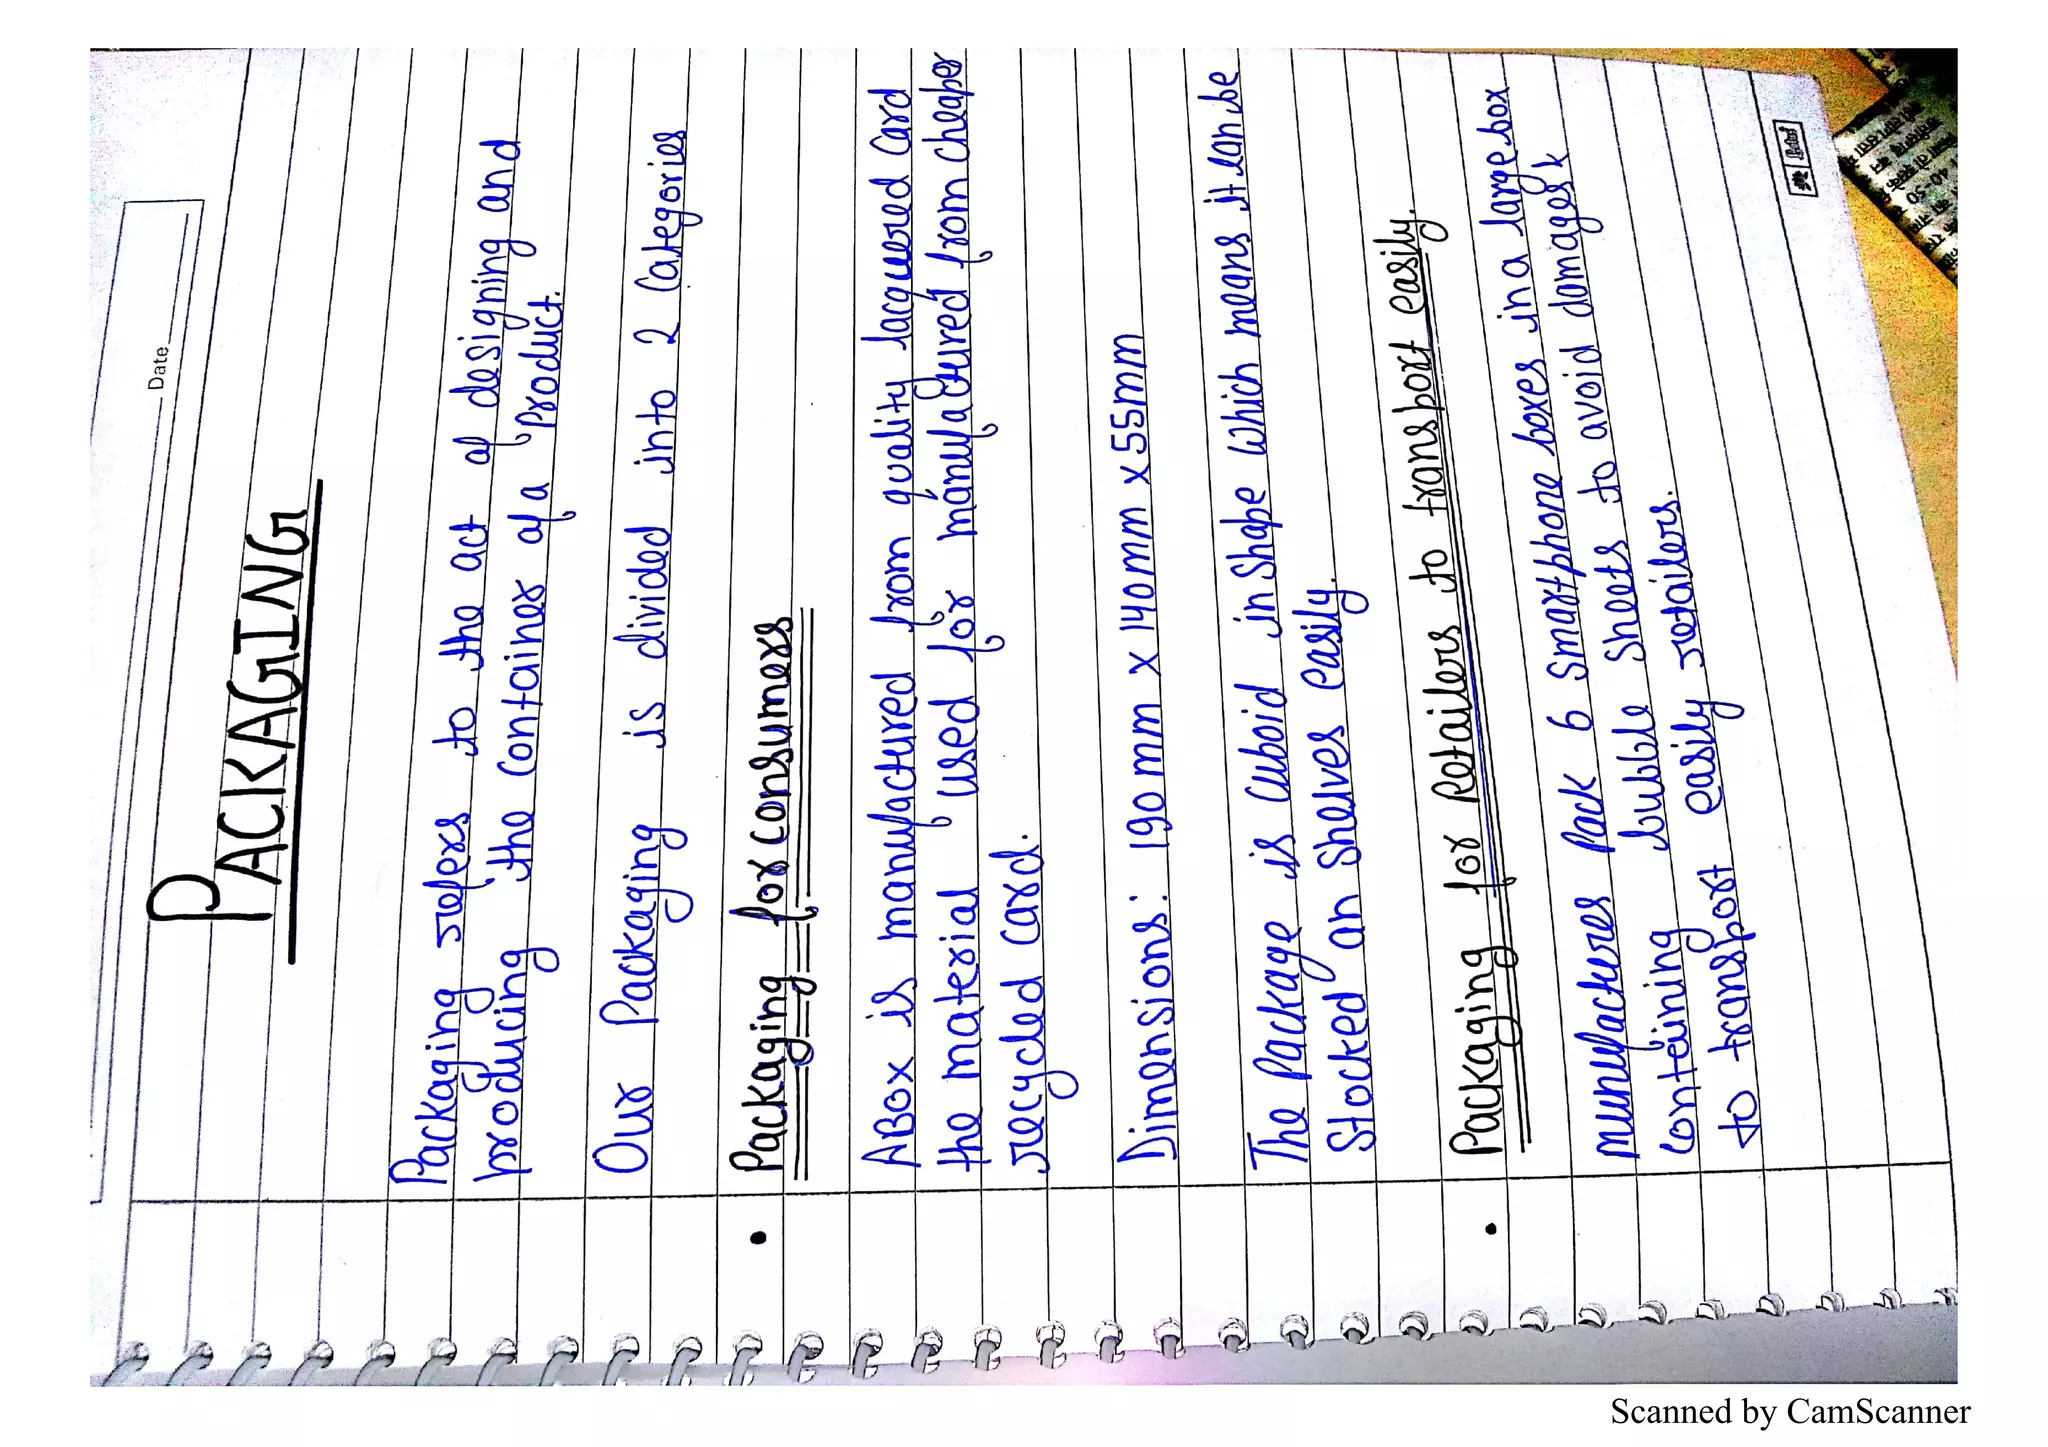 Date
PACKAGING
Packaging refers to the act of designing and
producing the container of a product.
Our Packaging is divided into 2 Categories
• Packaging for consumers
A Box is manufactured from quality lacquered card
the material used for manufactured from cheaper
recycled card.
Dimensions: 190mm x 140mm x 55mm
The Package is cuboid in shape which means it can be
Stocked on shelves easily.
• Packaging for Retailers to transport easily.
Munufactures Pack 6 smartphone boxes in a large box
containing bubble sheets to avoid damages &
to transport easily retailers.
Scanned by CamScanner